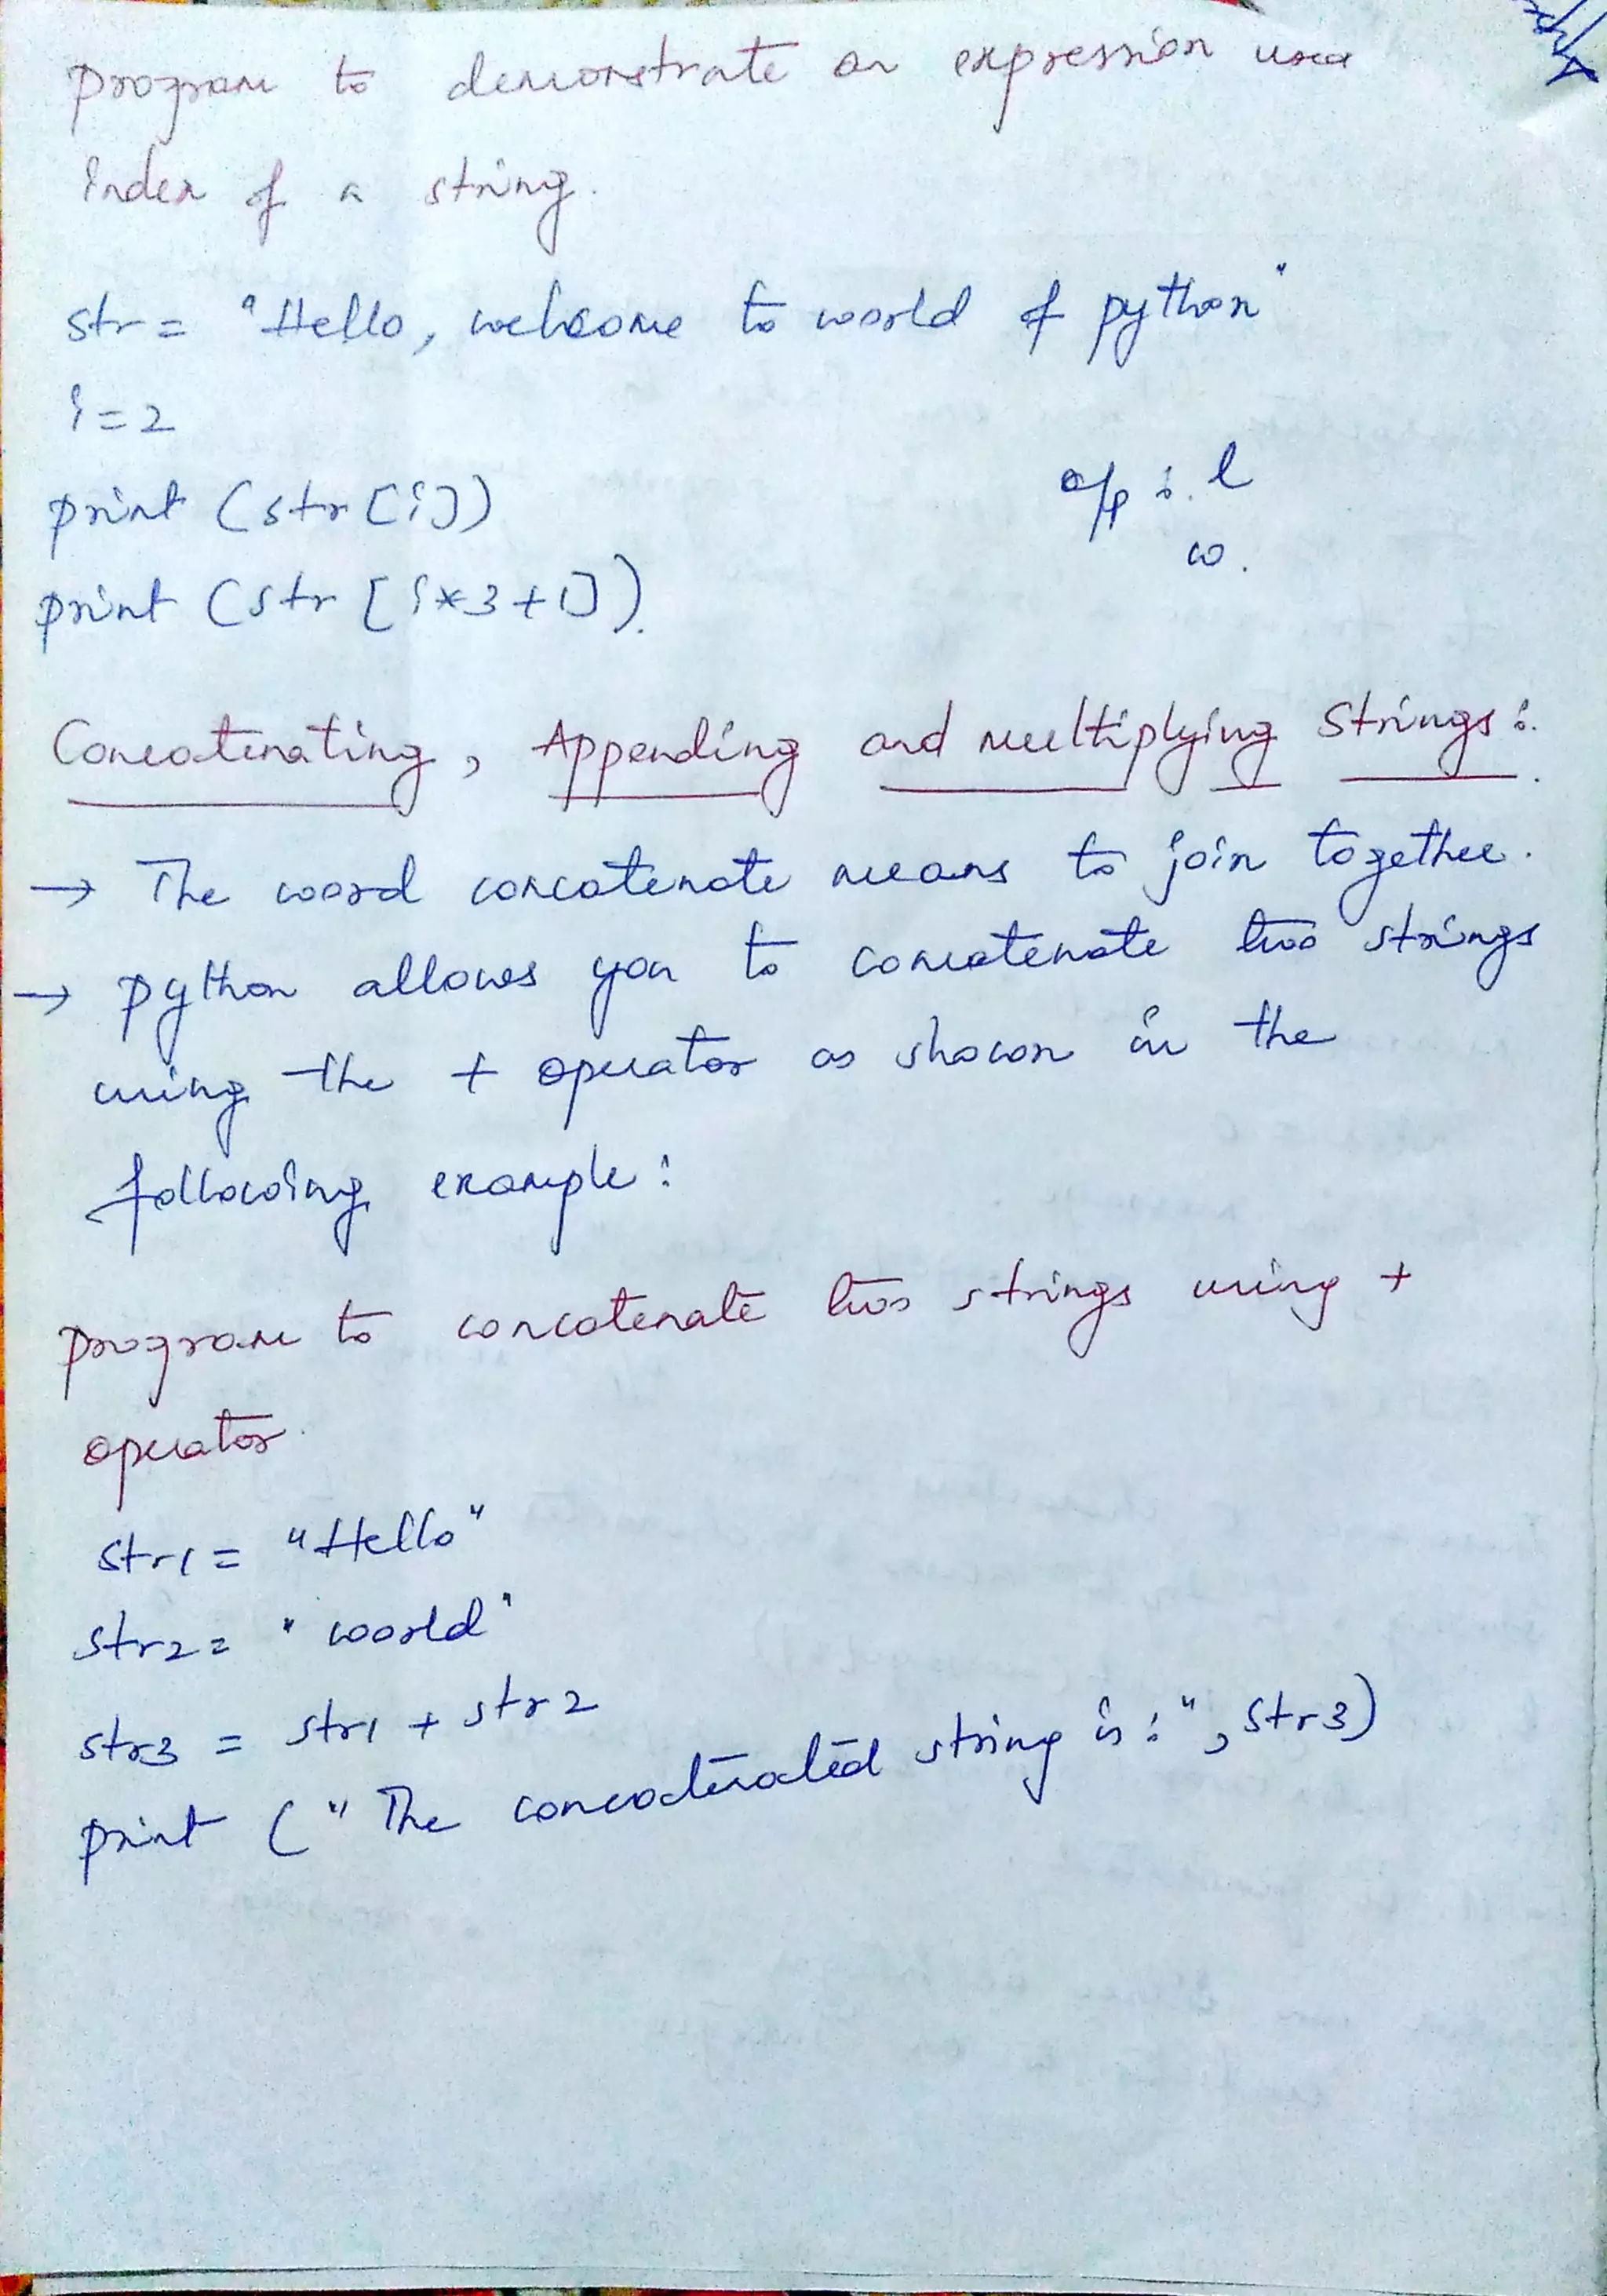 program to demonstrate an expression used
index of a string.
str = "Hello, welcome to world of python"
i = 2
print (str [i])
o/p : l
w.
print (str [i*3+1]).
Concatenating, Appending and multiplying Strings :.
→ The word concatenate means to join together.
→ python allows you to concatenate two strings
using the + operator as shown in the
following example :
program to concatenate two strings using +
operator.
str1 = "Hello"
str2 = "world"
str3 = str1 + str2
print ("The concatenated string is :", str3)